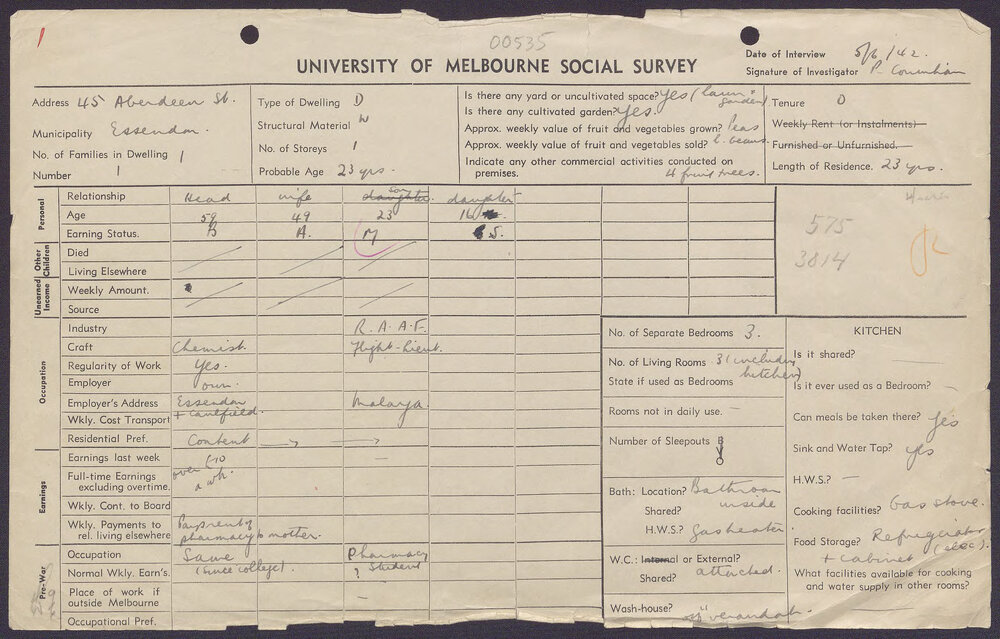 1
00535
UNIVERSITY OF MELBOURNE SOCIAL SURVEY
Date of Interview 5/6/42.
Signature of Investigator P.
Address 45 Aberdeen St.
Municipality Essendon.
No. of Families in Dwelling 1
Number 1
Type of Dwelling D
Structural Material W
No. of Storeys 1
Probable Age 23 yrs.
Is there any yard or uncultivated space? Yes (lawn + garden)
Is there any cultivated garden? Yes.
Approx. weekly value of fruit and vegetables grown? Peas
Approx. weekly value of fruit and vegetables sold? beans
Indicate any other commercial activities conducted on premises. 4 fruit trees.
Tenure O
Weekly Rent (or Instalments)
Furnished or Unfurnished.
Length of Residence. 23 yrs.
Personal
Relationship Head wife daughter son daughter
Age 59 49 23 16
Earning Status. B A. M S.
575
3814
Other Children
Died
Living Elsewhere
Unearned Income
Weekly Amount.
Source
Occupation
Industry R.A.A.F.
Craft Chemist. Flight-Lieut.
Regularity of Work Yes.
Employer own.
Employer's Address Essendon + Caulfield. Malaya.
Wkly. Cost Transport
Residential Pref. Content → →
Earnings
Earnings last week over £10 —
Full-time Earnings excluding overtime. a wk.
Wkly. Cont. to Board
Wkly. Payments to rel. living elsewhere Pays rent of pharmacy to mother.
Pre-War
Occupation Same (since college). Pharmacy Student
Normal Wkly. Earn's. ?
Place of work if outside Melbourne
Occupational Pref.
No. of Separate Bedrooms 3.
No. of Living Rooms 3 (including kitchen)
State if used as Bedrooms
Rooms not in daily use. —
Number of Sleepouts
Bath: Location? Bathroom inside
Shared?
H.W.S.? Gas heater
W.C.: Internal or External? attached.
Shared?
Wash-house? on verandah.
KITCHEN
Is it shared?
Is it ever used as a Bedroom? —
Can meals be taken there? Yes
Sink and Water Tap? yes
H.W.S.? —
Cooking facilities? Gas stove.
Food Storage? Refrigerator + cabinet (elec).
What facilities available for cooking
and water supply in other rooms?